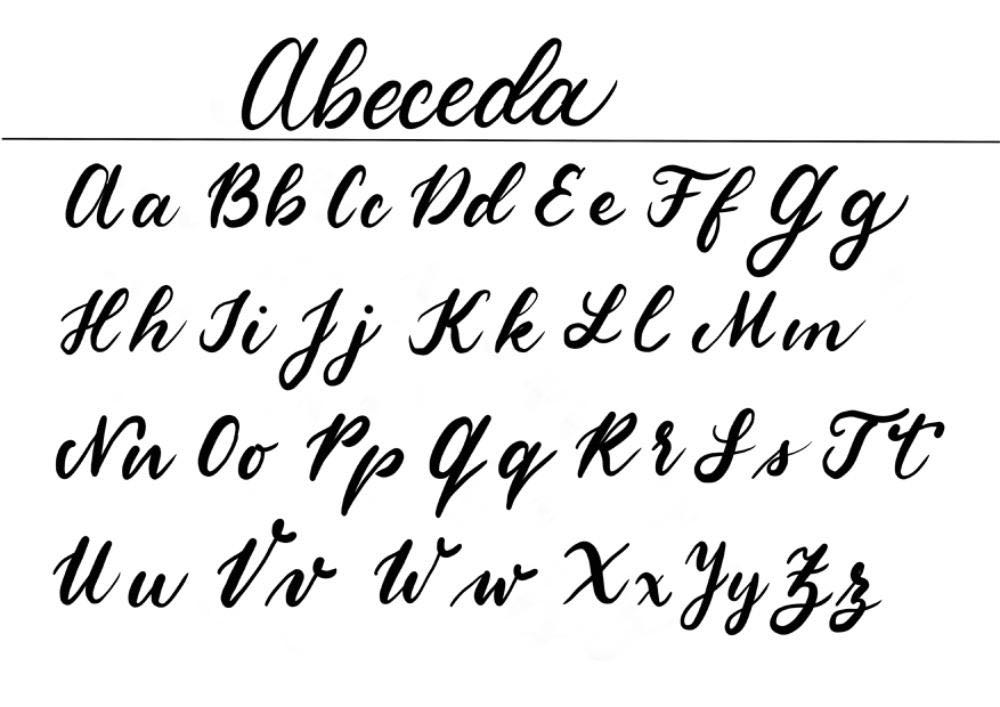 Abeceda
Aa Bb Cc Dd Ee Ff Gg
Hh Ii Jj Kk Ll Mm
Nn Oo Pp Qq Rr Ss Tt
Uu Vv Ww Xx Yy Zz